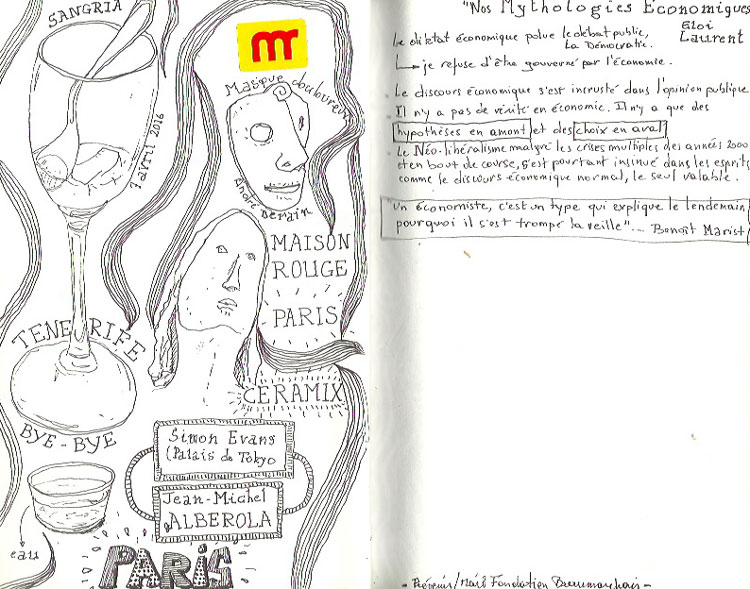 SANGRIA
7 avril 2016
TENERIFE
BYE-BYE
eau
mr
Masque douloureux
André Derain
MAISON
ROUGE
PARIS
CERAMIX
Simon Evans
(Palais de Tokyo
Jean-Michel
ALBEROLA
PARIS
"Nos Mythologies Economiques
Eloi
Laurent
Le diktat économique polue le débat public,
La Démocratie.
je refuse d'être gouverné par l'économie.
Le discours économique s'est incrusté dans l'opinion publique
Il n'y a pas de vérité en économie. Il n'y a que des
hypothèses en amont et des choix en aval
Le Néo-libéralisme malgré les crises multiples des années 2000
et en bout de course, s'est pourtant insinué dans les esprits
comme le discours économique normal, le seul valable.
"un économiste, c'est un type qui explique le lendemain
pourquoi il s'est trompé la veille"... Benoît Marist
- Prévenir/Mail Fondation Beaumarchais -